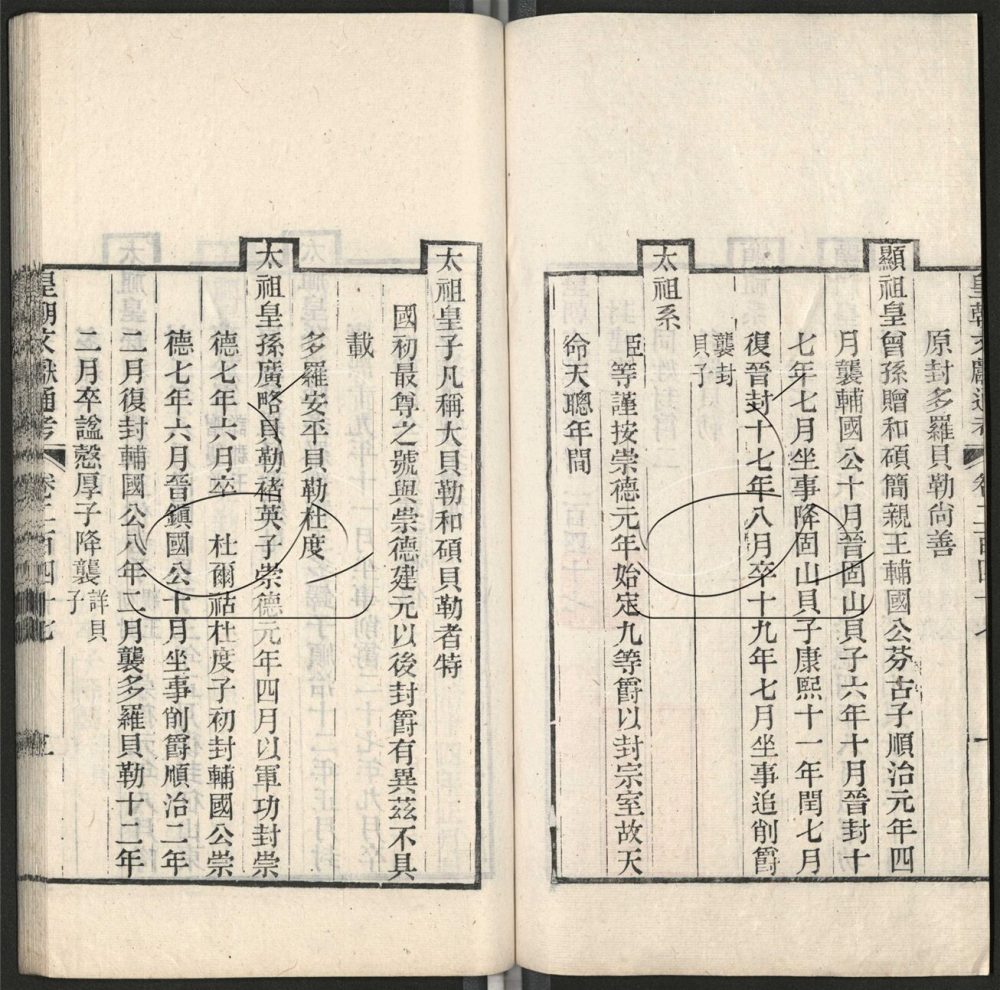 原封多羅貝勒尚善
顯祖皇曾孫贈和碩簡親王輔國公芬古子順治元年四
月襲輔國公十月晉固山貝子六年十月晉封十
七年七月坐事降固山貝子康熙十一年閏七月
復晉封十七年八月卒十九年七月坐事追削爵
襲封
貝子
太祖系
臣等謹按崇德元年始定九等爵以封宗室故天
命天聰年間
太祖皇子凡稱大貝勒和碩貝勒者特
國初最尊之號與崇德建元以後封爵有異茲不具
載
多羅安平貝勒杜度
太祖皇孫廣略貝勒褚英子崇德元年四月以軍功封崇
德七年六月卒 杜爾祜杜度子初封輔國公崇
德七年六月晉鎮國公十月坐事削爵順治二年
二月復封輔國公八年二月襲多羅貝勒十二年
二月卒諡慤厚子降襲詳貝
子
皇朝文獻通考 卷二百四十七